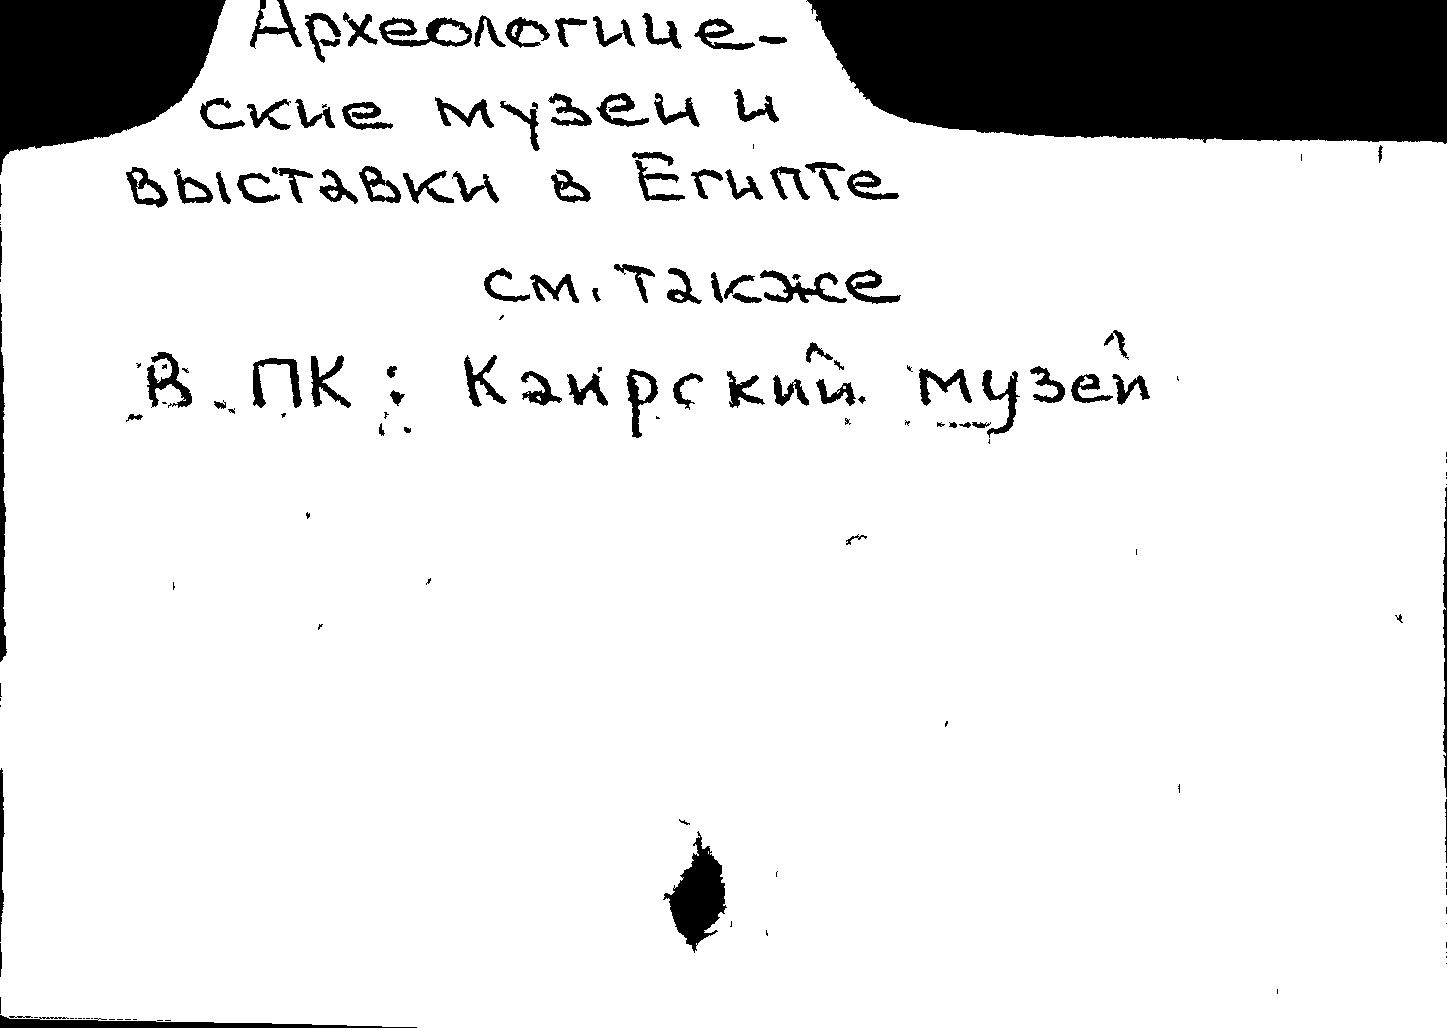 Археологиче-
ские музеи и
выставки в Египте
см. также
В ПК: Каирский музей